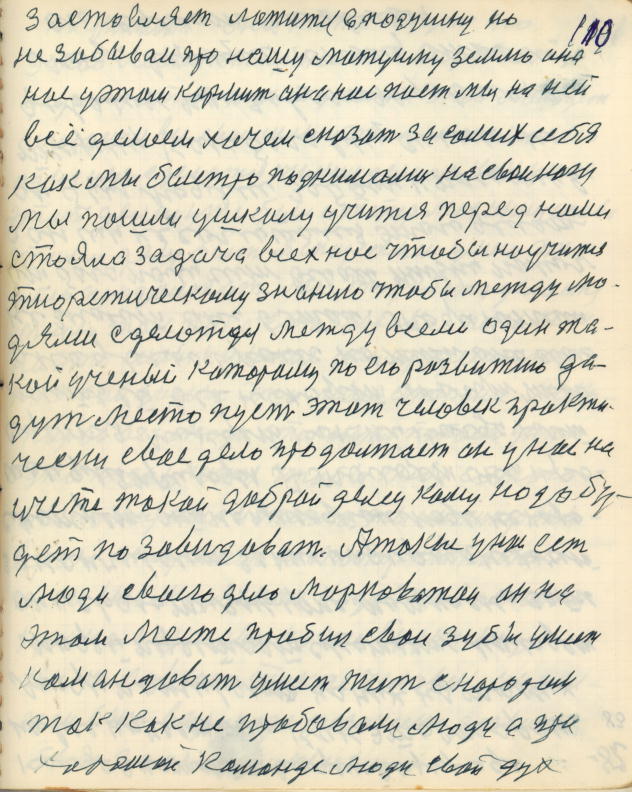 110
заставляет лотит в подушку но
не забывай про нашу матушку землю она
нас у этом кормит она нас поет мы на ней
всё делаем хочем сказат за самих себя
как мы быстро поднимались на свои ноги
мы пошли у школу учится перед нами
стояла задача всех нас чтобы научится
тиоретическому знанию чтобы между лю-
дями сделотся между всеми один та-
кой ученый которому по его развитию да-
дут место пуст этот человек практи-
чески свое дело продолжает он у нас на
учете такой добрай делец кому надо бу-
дет позавидоват. А такие у нас ест
люди своего дело он на
этом месте пробил свои зубы умеет
командоват умеет жит с народом
так как не пробовали люди а при
хорошой команде люди свой дух